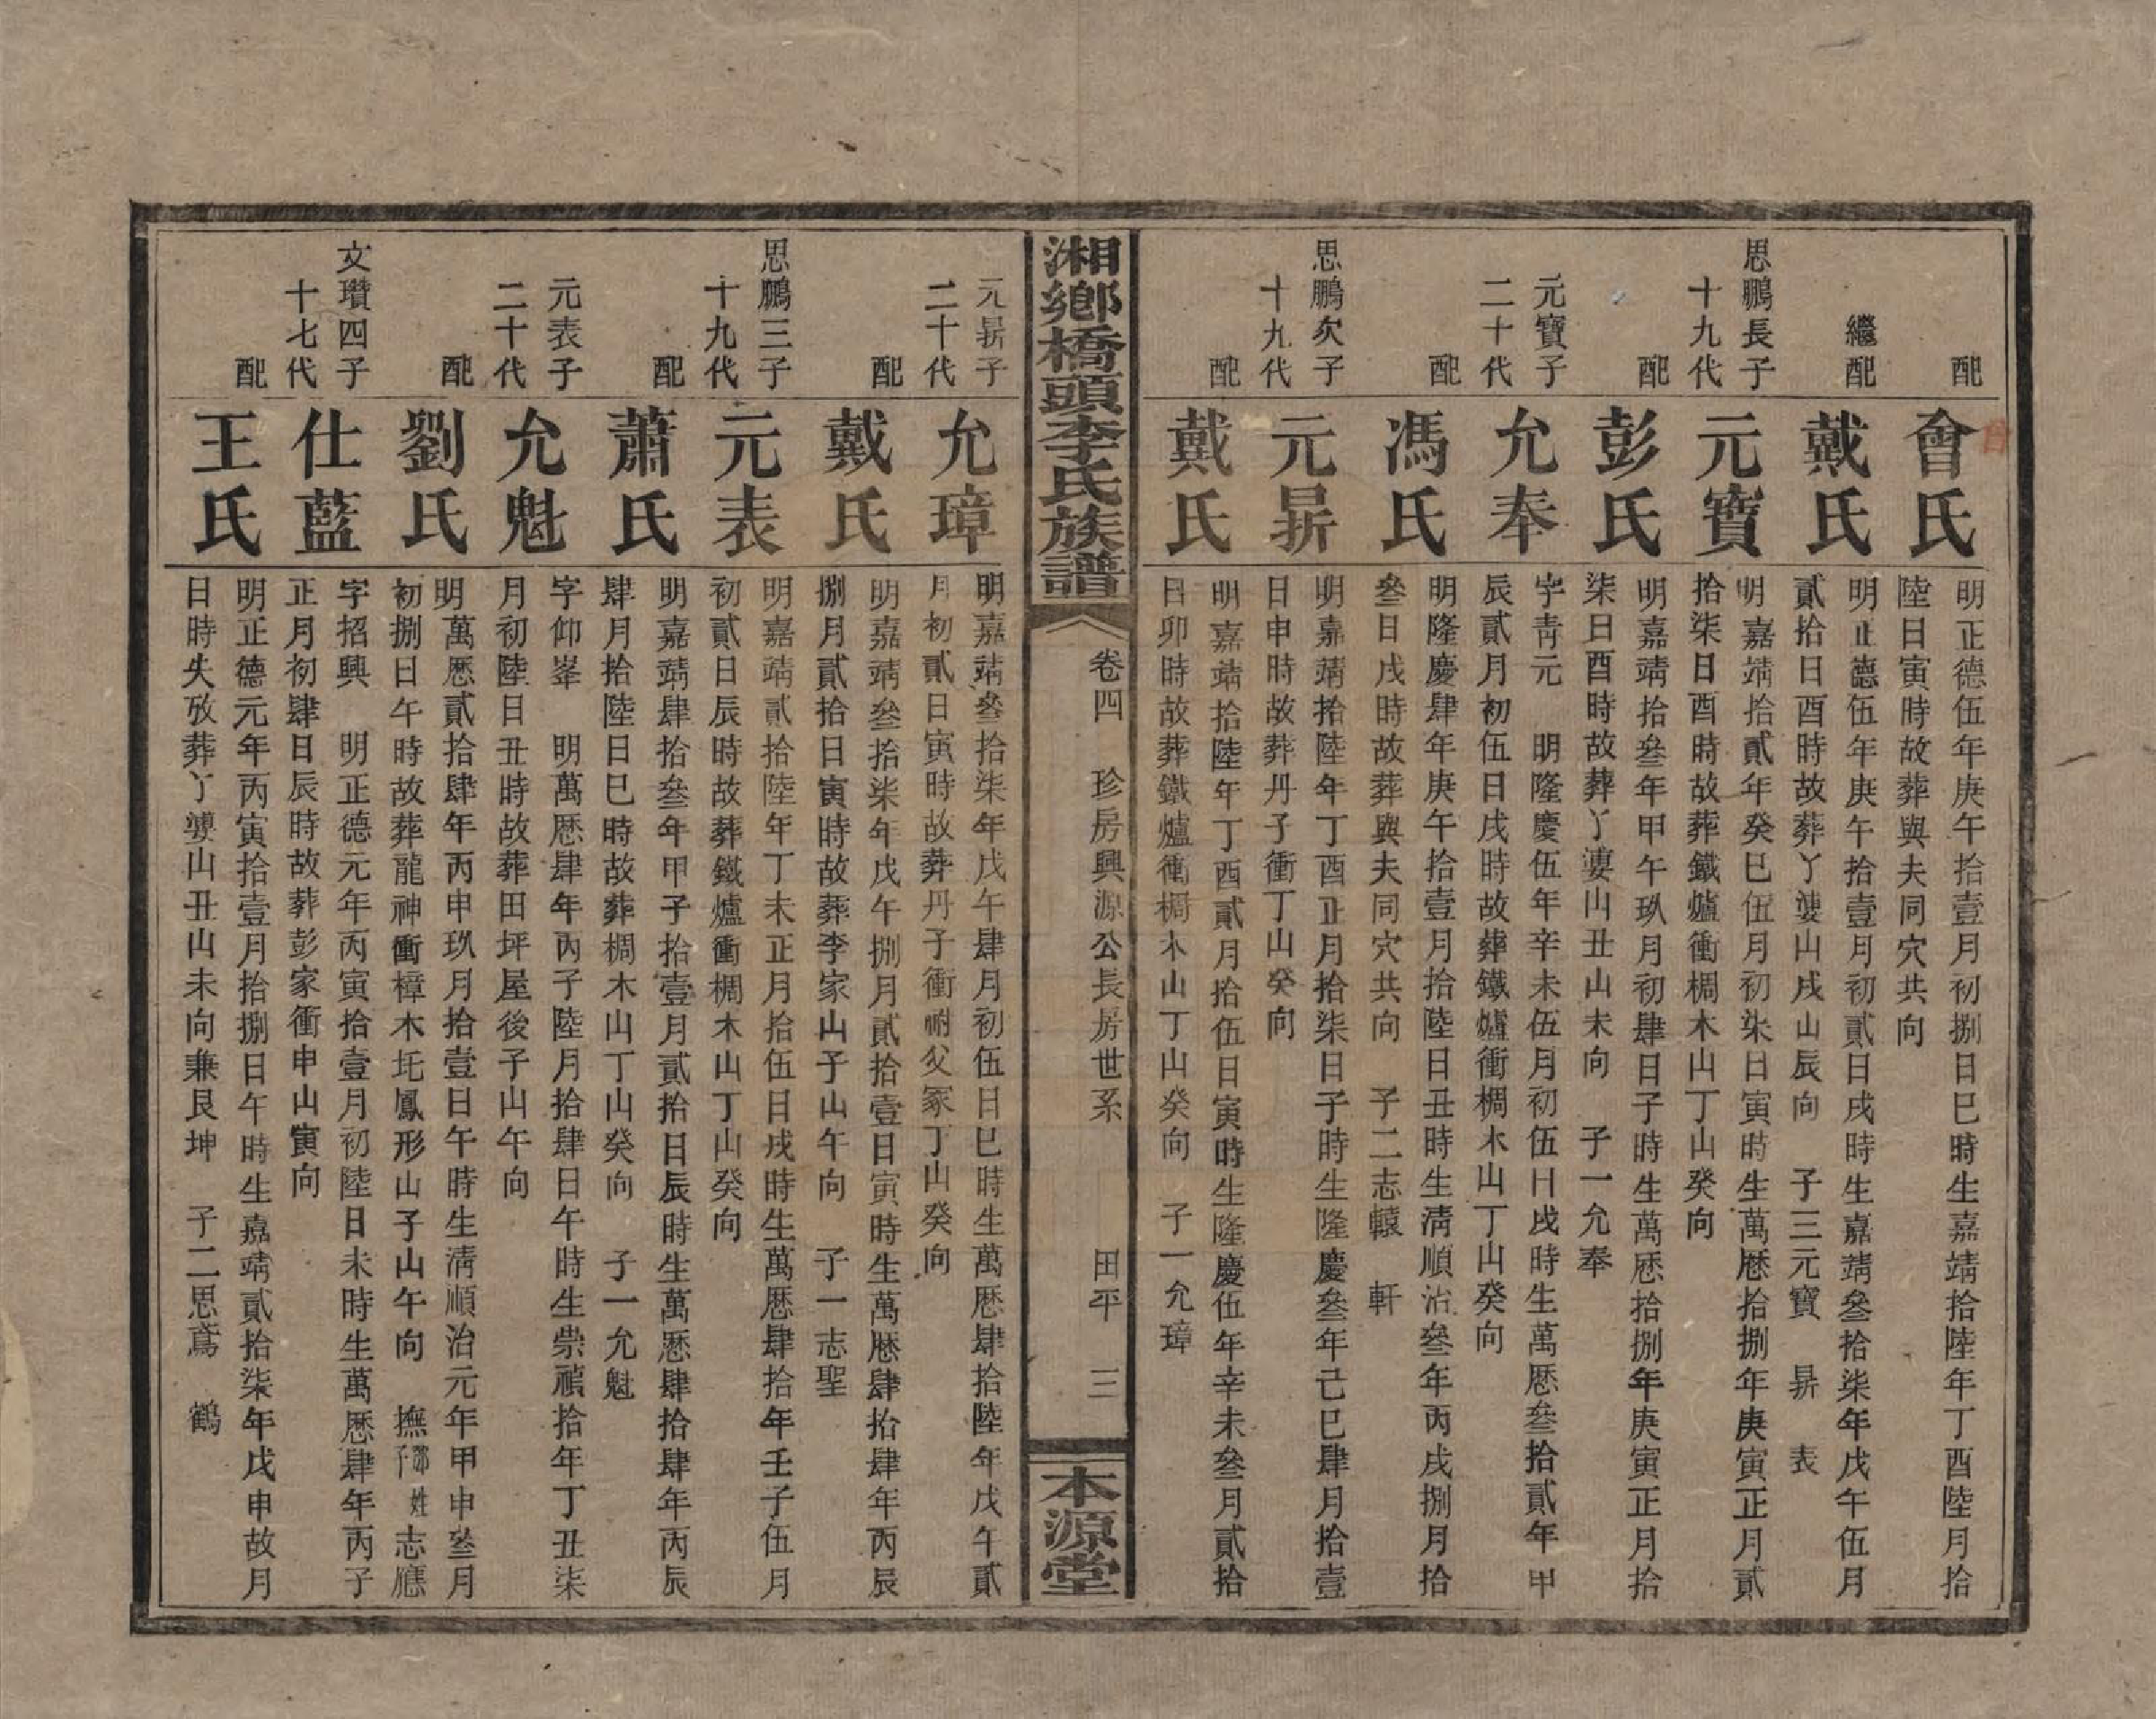 配
會氏
明正德伍年庚午拾壹月初捌日巳時生嘉靖拾陸年丁酉陸月拾
陸日寅時故葬與夫同穴共向
繼配
戴氏
明正德伍年庚午拾壹月初貳日戌時生嘉靖叄拾柒年戊午伍月
貳拾日酉時故葬丫婆山戌山辰向 子三元寶 昇 表
思鵬長子
十九代
元寶
明嘉靖拾貳年癸巳伍月初柒日寅時生萬歷拾捌年庚寅正月貳
拾柒日酉時故葬鐵爐衝椆木山丁山癸向
配
彭氏
明嘉靖拾叄年甲午玖月初肆日子時生萬歷拾捌年庚寅正月拾
柒日酉時故葬丫婆山丑山未向 子一允奉
元寶子
二十代
允奉
字青元 明隆慶伍年辛未伍月初伍日戌時生萬歷叄拾貳年甲
辰貳月初伍日戌時故葬鐵爐衝椆木山丁山癸向
配
馮氏
明隆慶肆年庚午拾壹月拾陸日丑時生清順治叄年丙戌捌月拾
叄日戌時故葬與夫同穴共向 子二志轅 軒
思鵬次子
十九代
元昇
明嘉靖拾陸年丁酉正月拾柒日子時生隆慶叄年己巳肆月拾壹
日申時故葬丹子衝丁山癸向
配
戴氏
明嘉靖拾陸年丁酉貳月拾伍日寅時生隆慶伍年辛未叄月貳拾
日卯時故葬鐵爐衝椆木山丁山癸向 子一允璋
湘鄉橋頭李氏族譜
卷四 珍房興源公長房世系 田平 三
本源堂
元昇子
二十代
允璋
明嘉靖叄拾柒年戊午肆月初伍日巳時生萬歷肆拾陸年戊午貳
月初貳日寅時故葬丹子衝祔父冢丁山癸向
配
戴氏
明嘉靖叄拾柒年戊午捌月貳拾壹日寅時生萬歷肆拾肆年丙辰
捌月貳拾日寅時故葬李家山子山午向 子一志聖
思鵬三子
十九代
元表
明嘉靖貳拾陸年丁未正月拾伍日戌時生萬歷肆拾年壬子伍月
初貳日辰時故葬鐵爐衝椆木山丁山癸向
配
蕭氏
明嘉靖肆拾叄年甲子拾壹月貳拾日辰時生萬歷肆拾肆年丙辰
肆月拾陸日巳時故葬椆木山丁山癸向 子一允魁
元表子
二十代
允魁
字仰峯 明萬歷肆年丙子陸月拾肆日午時生崇禎拾年丁丑柒
月初陸日丑時故葬田坪屋後子山午向
配
劉氏
明萬歷貳拾肆年丙申玖月拾壹日午時生清順治元年甲申叄月
初捌日午時故葬龍神衝樟木坉鳳形山子山午向 撫鄧姓子志應
文瓚四子
十七代
仕藍
字招興 明正德元年丙寅拾壹月初陸日未時生萬歷肆年丙子
正月初肆日辰時故葬彭家衝申山寅向
配
王氏
明正德元年丙寅拾壹月拾捌日午時生嘉靖貳拾柒年戊申故月
日時失攷葬丫婆山丑山未向兼艮坤 子二思鳶 鶴